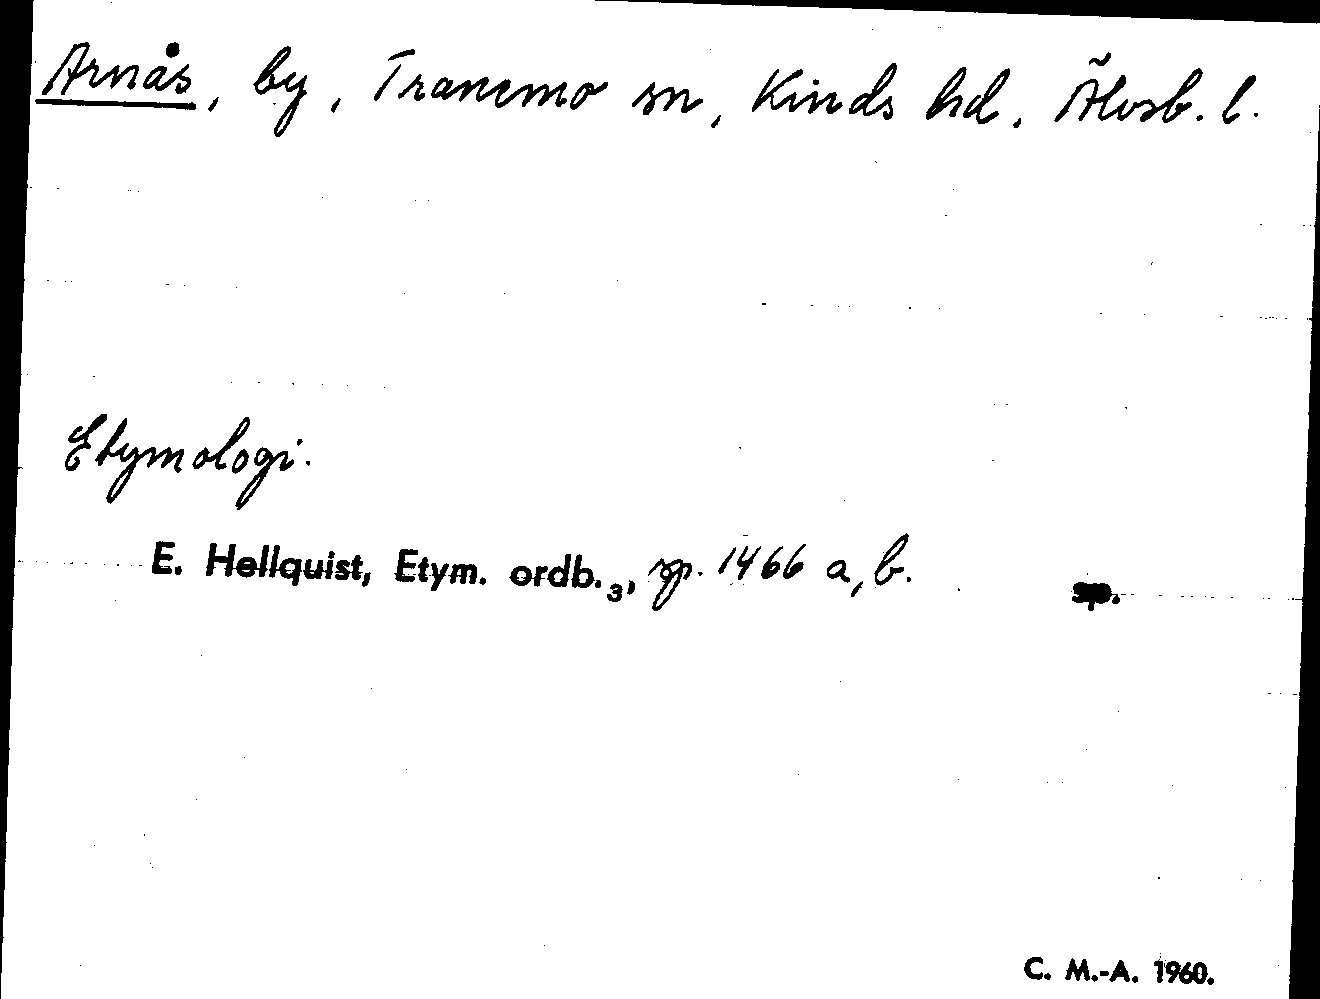 Arnås, by, Tranemo sn, Kinds hd. Älvsb. l.
Etymologi.
E. Hellquist, Etym. ordb.₃, sp. 1466 a, b. sp.
C. M.-A. 1960.